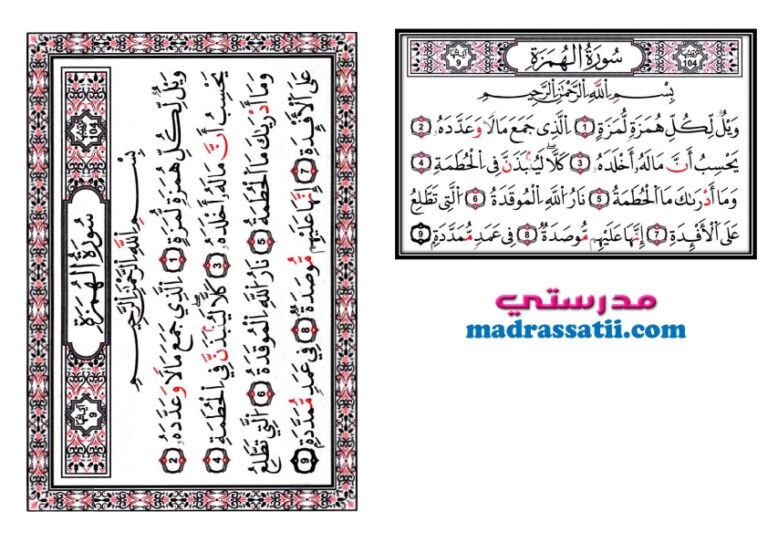 سُورَةُ الْهُمَزَةِ
104
آياتها 9
بِسْمِ اللَّهِ الرَّحْمَٰنِ الرَّحِيمِ
وَيْلٌ لِّكُلِّ هُمَزَةٍ لُّمَزَةٍ 1 اِلَّذِي جَمَعَ مَالًا وَعَدَّدَهُ 2
يَحْسِبُ أَنَّ مَالَهُ أَخْلَدَهُ 3 كَلَّا لَيُنۢبَذَنَّ فِي الْحُطَمَةِ 4
وَمَا أَدْرَىٰكَ مَا الْحُطَمَةُ 5 نَارُ اللَّهِ الْمُوقَدَةُ 6 اَلَّتِي تَطَّلِعُ
عَلَى الْأَفْـِٔدَةِ 7 إِنَّهَا عَلَيْهِم مُّوصَدَةٌ 8 فِي عَمَدٍ مُّمَدَّدَةٍ 9
104
سُورَةُ الْهُمَزَةِ
آياتها 9
بِسْمِ اللَّهِ الرَّحْمَٰنِ الرَّحِيمِ
وَيْلٌ لِّكُلِّ هُمَزَةٍ لُّمَزَةٍ 1 اِلَّذِي جَمَعَ مَالًا وَعَدَّدَهُ 2
يَحْسِبُ أَنَّ مَالَهُ أَخْلَدَهُ 3 كَلَّا لَيُنۢبَذَنَّ فِي الْحُطَمَةِ 4
وَمَا أَدْرَىٰكَ مَا الْحُطَمَةُ 5 نَارُ اللَّهِ الْمُوقَدَةُ 6 اَلَّتِي تَطَّلِعُ
عَلَى الْأَفْـِٔدَةِ 7 إِنَّهَا عَلَيْهِم مُّوصَدَةٌ 8 فِي عَمَدٍ مُّمَدَّدَةٍ 9
مدرستي
madrassatii.com